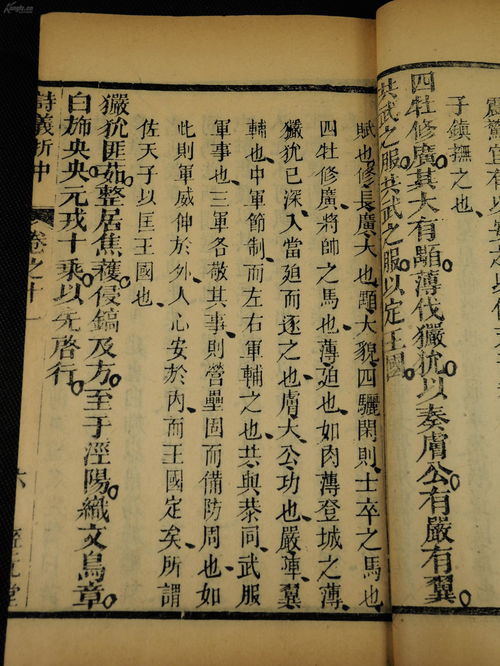 震讋宜有以
子鎮撫之也
四牡修廣其大有顒薄伐玁狁以奏膚公有嚴有翼
共武之服共武之服以定王國
賦也修長廣大也顒大貌四驪閑則士卒之馬也
四牡修廣將帥之馬也薄迫也如肉薄登城之薄
玁狁已深入當迫而逐之也膚大公功也嚴翼
輔也中軍節制而左右軍輔之也共與恭同武服
軍事也三軍各敬其事則營壘固而備防周也如
此則軍威伸於外人心安於內而王國定矣所謂
佐天子以匡王國也
玁狁匪茹整居焦穫侵鎬及方至于涇陽織文鳥章
白斾央央元戎十乘以先啓行
詩義折中
卷之十一
六